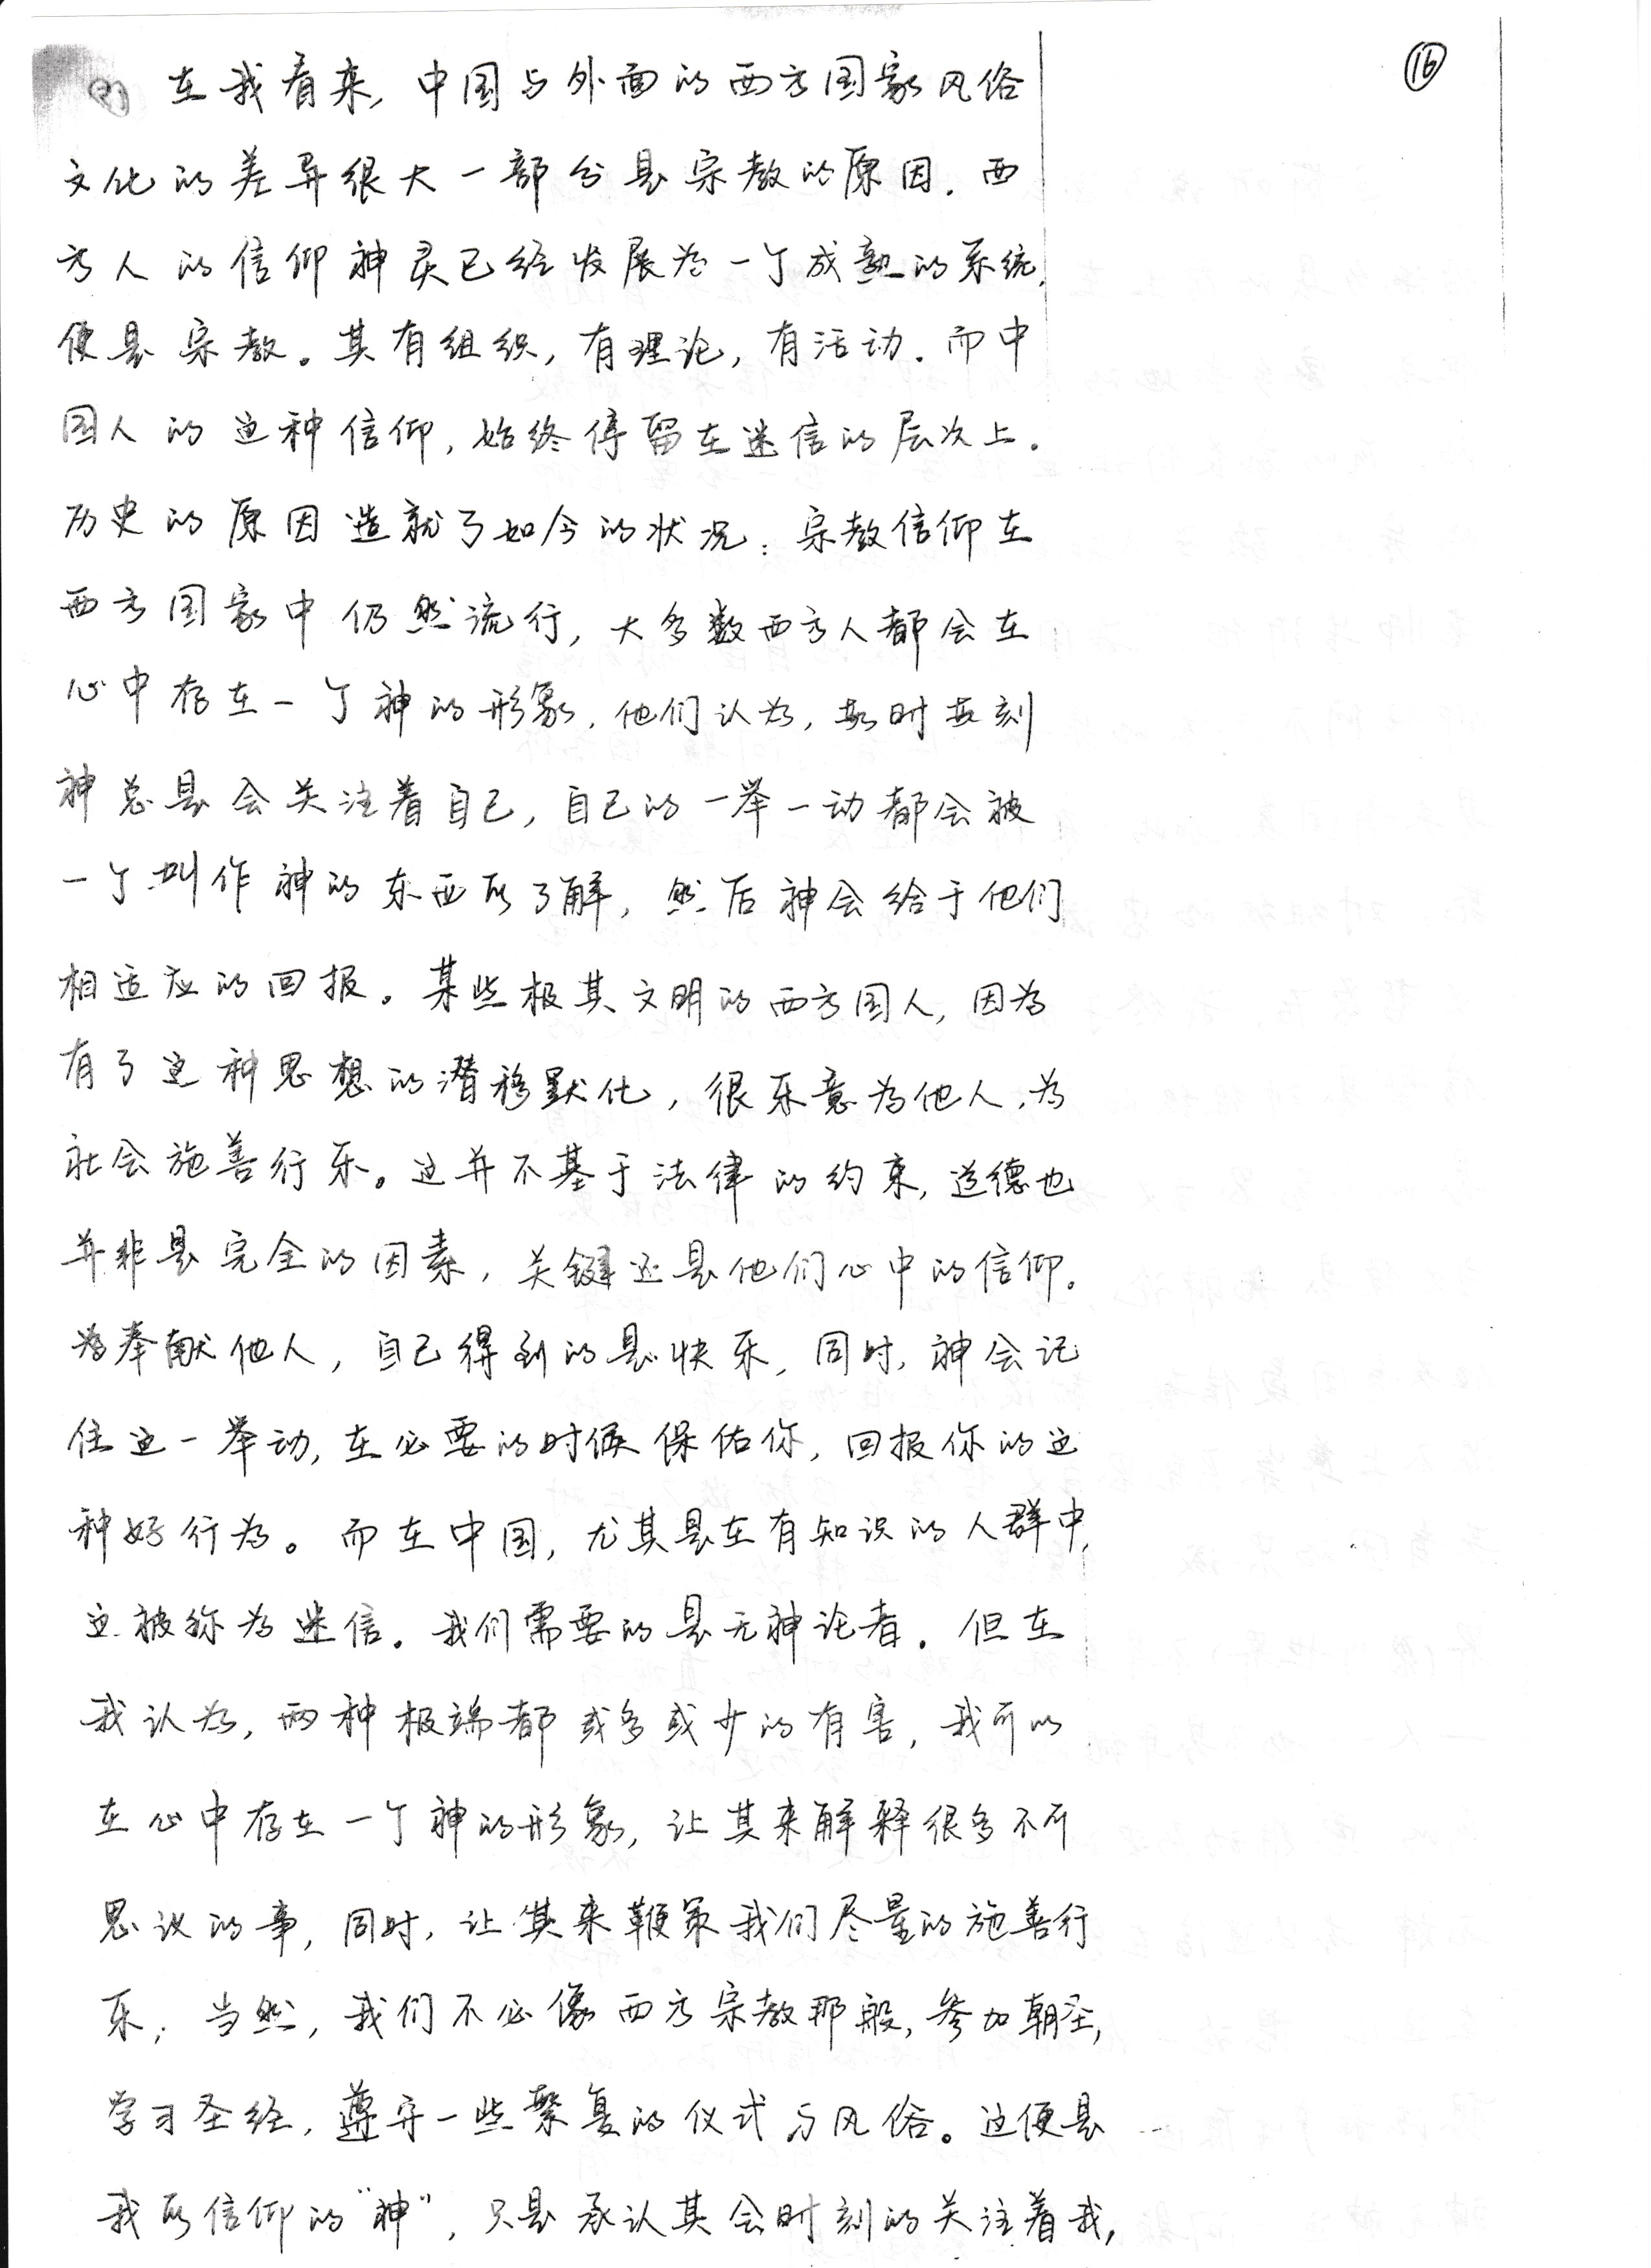 ⑯
在我看来,中国与外面的西方国家风俗
文化的差异很大一部分是宗教的原因.西
方人的信仰神灵已经发展为一个成熟的系统,
便是宗教。其有组织,有理论,有活动.而中
国人的这种信仰,始终停留在迷信的层次上.
历史的原因造就了如今的状况:宗教信仰在
西方国家中仍然流行,大多数西方人都会在
心中存在一个神的形象.他们认为,时刻
神总是会关注着自己,自己的一举一动都会被
一个叫作神的东西所了解,然后神会给于他们
相适应的回报。某些极其文明的西方国人,因为
有了这种思想的潜移默化,很乐意为他人,为
社会施善行乐。这并不基于法律的约束,道德也
并非是完全的因素,关键还是他们心中的信仰.
为奉献他人,自己得到的是快乐,同时,神会记
住这一举动,在必要的时候保佑你,回报你的这
种好行为。而在中国,尤其是在有知识的人群中,
这被称为迷信.我们需要的是无神论者.但在
我认为,两种极端都或多或少的有害,我可以
在心中存在一个神的形象,让其来解释很多不可
思议的事,同时,让其来鞭策我们尽量的施善行
乐;当然,我们不必像西方宗教那般,参加朝圣,
学习圣经,遵守一些繁复的仪式与风俗。这便是
我所信仰的"神",只是承认其会时刻的关注着我,